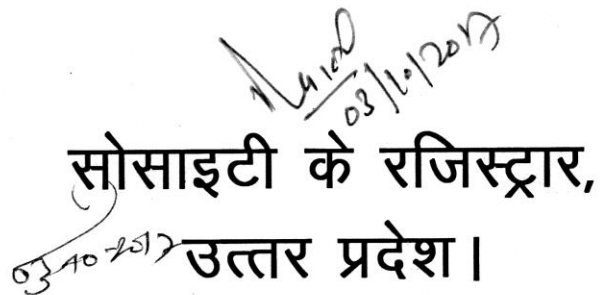 03/10/2017
सोसाइटी के रजिस्ट्रार,
03-10-2017
उत्तर प्रदेश।